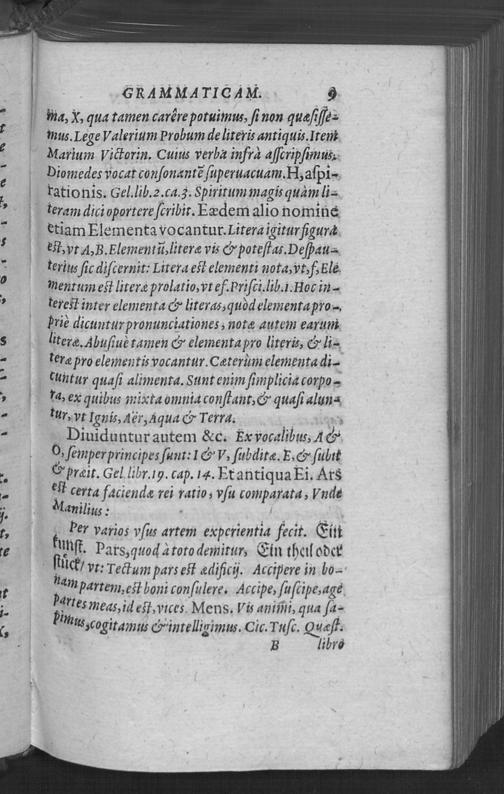 GRAMMATICAM. 9
ma, X, qua tamen carêre potuimus, si non quæsisse-
mus. Lege Valerium Probum de literis antiquis. Item
Marium Victorin. Cuius verba infrà asscripsimus.
Diomedes vocat consonantẽ superuacuam. H, aspi-
rationis. Gel. lib. 2. ca. 3. Spiritum magis quàm li-
teram dici oportere scribit. Eædem alio nomine
etiam Elementa vocantur. Litera igitur figura
est, vt A, B. Elementũ, literæ vis & potestas. Despau-
terius sic discernit: Litera est elementi nota, vt, f, Ele
mentum est literæ prolatio, vt ef. Prisci. lib. 1. Hoc in-
terest inter elementa & literas, quòd elementa pro-
priè dicuntur pronunciationes, notæ autem earum
literæ. Abusiuè tamen & elementa pro literis, & li-
teræ pro elementis vocantur. Cæterùm elementa di-
cuntur quasi alimenta. Sunt enim simplicia corpo-
ra, ex quibus mixta omnia constant, & quasi alun-
tur, vt Ignis, Aër, Aqua & Terra.
Diuiduntur autem &c. Ex vocalibus, A &
O, semper principes sunt: I & V, subditæ. E, & subit
& præit. Gel. libr. 19. cap. 14. Et antiqua Ei. Ars
est certa faciendæ rei ratio, vsu comparata, Vnde
Manilius:
Per varios vsus artem experientia fecit. Ein
kunst. Pars, quod à toto demitur, Ein theil oder
stück/ vt: Tectum pars est ædificij. Accipere in bo-
nam partem, est boni consulere. Accipe, suscipe, age
partes meas, id est, vices. Mens. Vis animi, qua sa-
pimus, cogitamus & intelligimus. Cic. Tusc. Quæst.
B libro